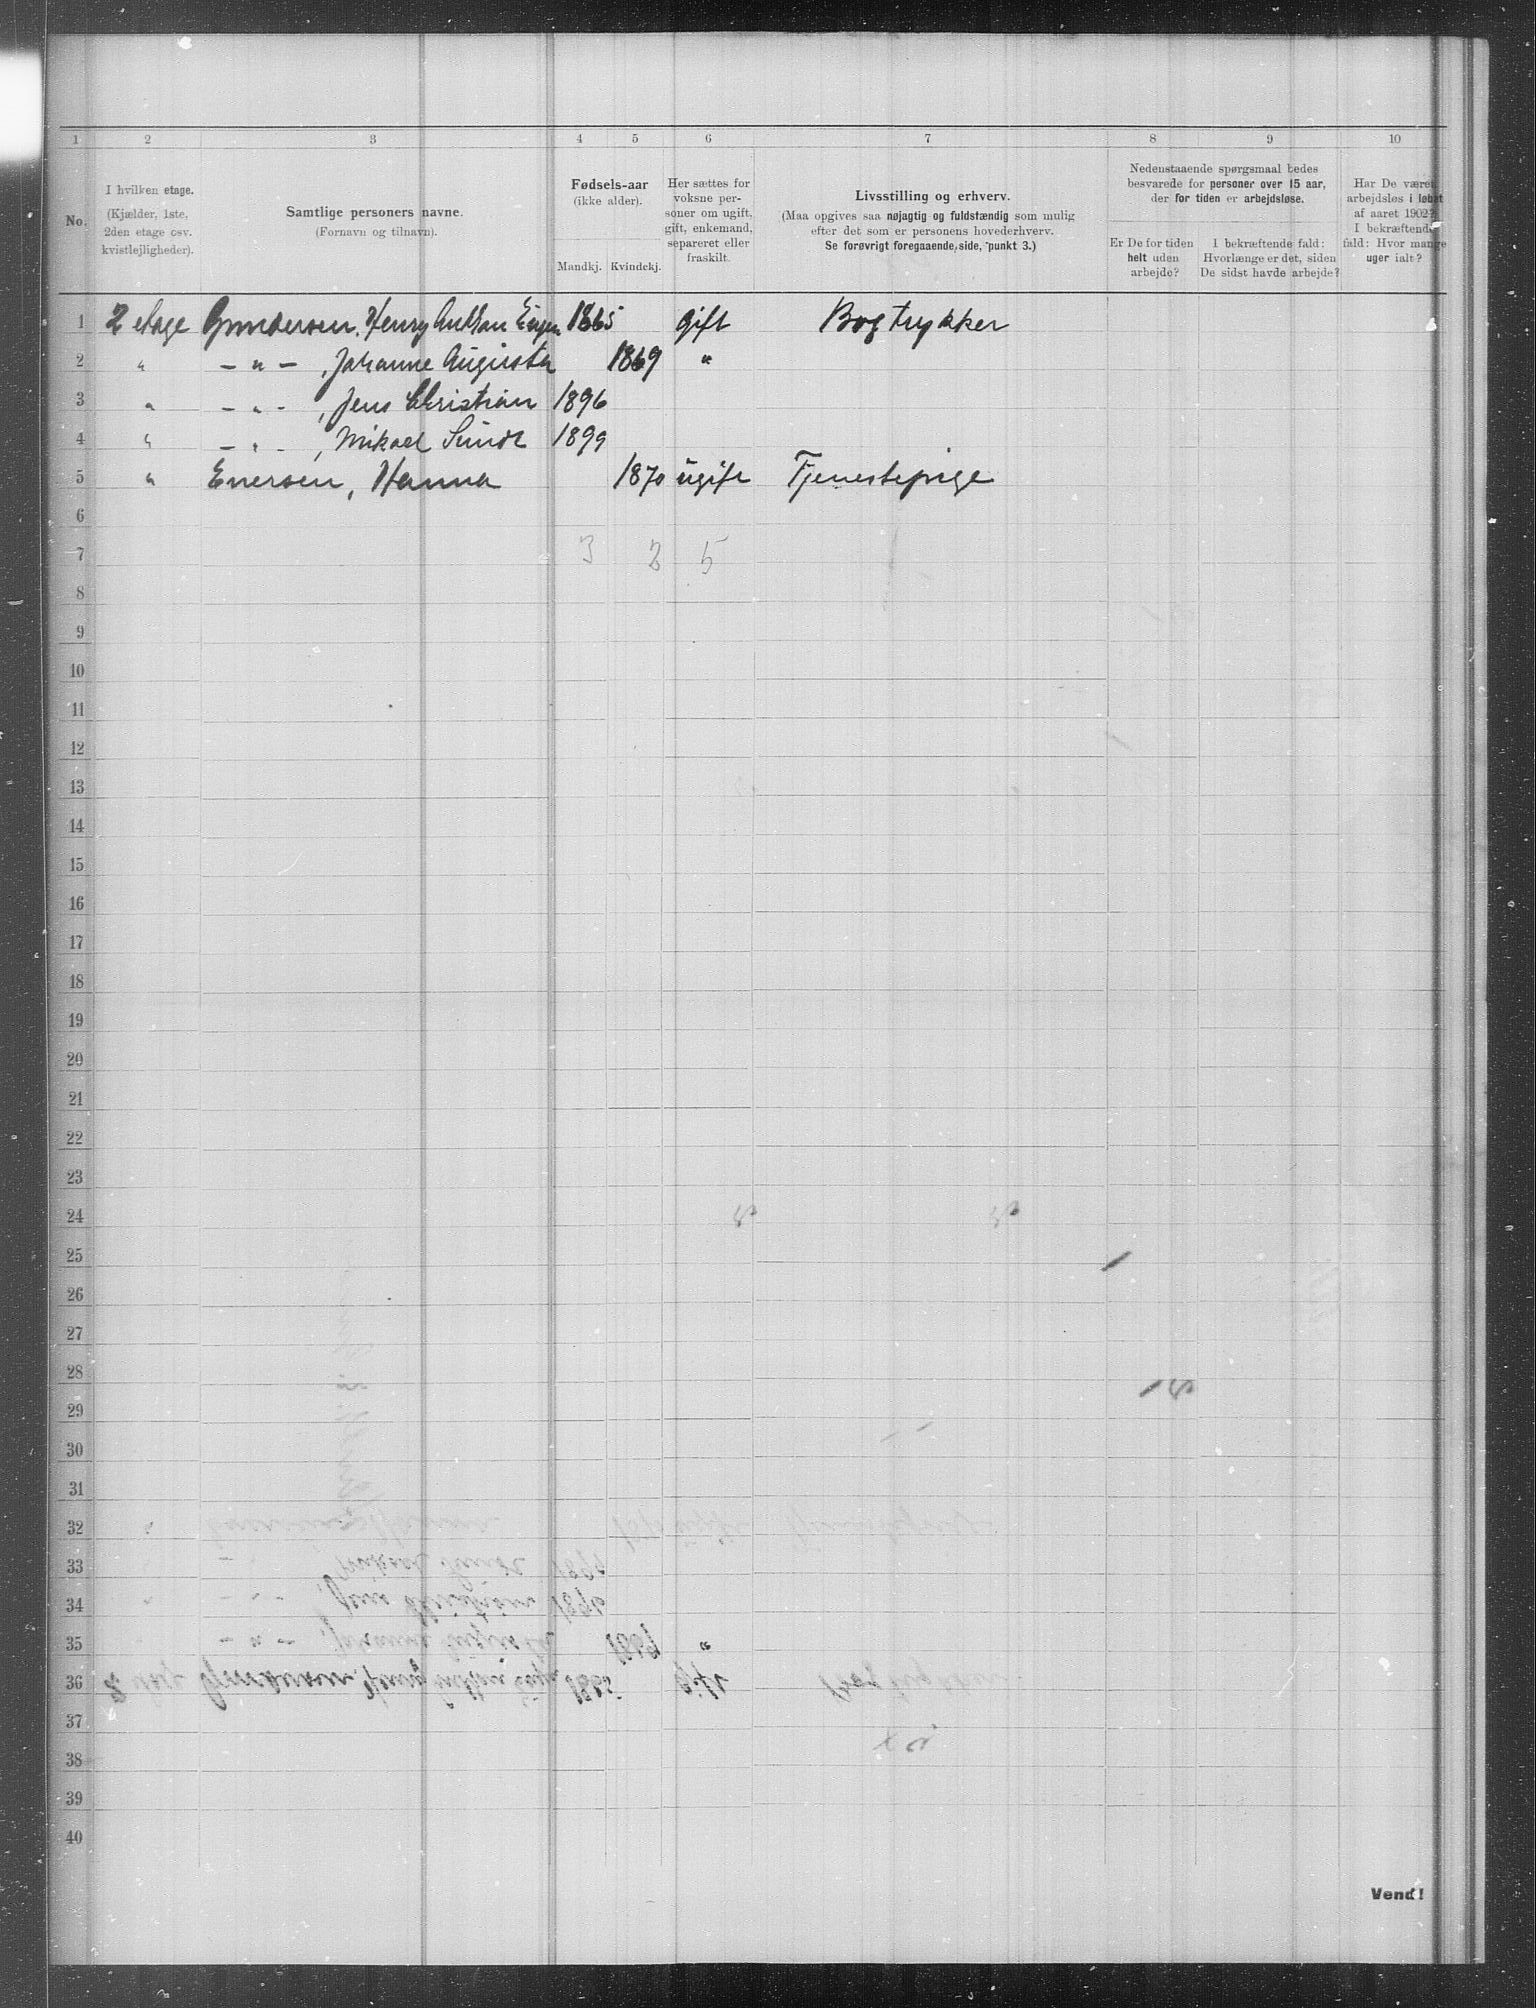 1 2 3 4 5 6 7 8 9 10
No.
I hvilken etage.
(Kjælder, 1ste,
2den etage osv.
kvistlejligheder).
Samtlige personers navne.
(Fornavn og tilnavn).
Fødsels-aar
(ikke alder).
Mandkj. Kvindekj.
Her sættes for
voksne per-
soner om ugift,
gift, enkemand,
separeret eller
fraskilt.
Livsstilling og erhverv.
(Maa opgives saa nøjagtig og fuldstændig som mulig
efter det som er personens hovederhverv.
Se forøvrigt foregaaende side, punkt 3.)
Nedenstaaende spørgsmaal bedes
besvarede for personer over 15 aar,
der for tiden er arbejdsløse.
Er De for tiden
helt uden
arbejde?
I bekræftende fald:
Hvorlænge er det, siden
De sidst havde arbejde?
Har De været
arbejdsløs i løbet
af aaret 1902?
I bekræftende
fald: Hvor mange
uger ialt?
1 2 etage Gundersen, Henry Anthan 1865 gift Bogtrykker
2 " — " — , Johanne Augusta 1869 "
3 " — " — , Jens Christian 1896
4 " — " — , Mikael Sundt 1899
5 " Enersen, Hanna 1870 ugift Tjenestepige
6
7 3 2 5
8
9
10
11
12
13
14
15
16
17
18
19
20
21
22
23
24
25
26
27
28
29
30
31
32
33
34
35
36
37
38
39
40
Vend!